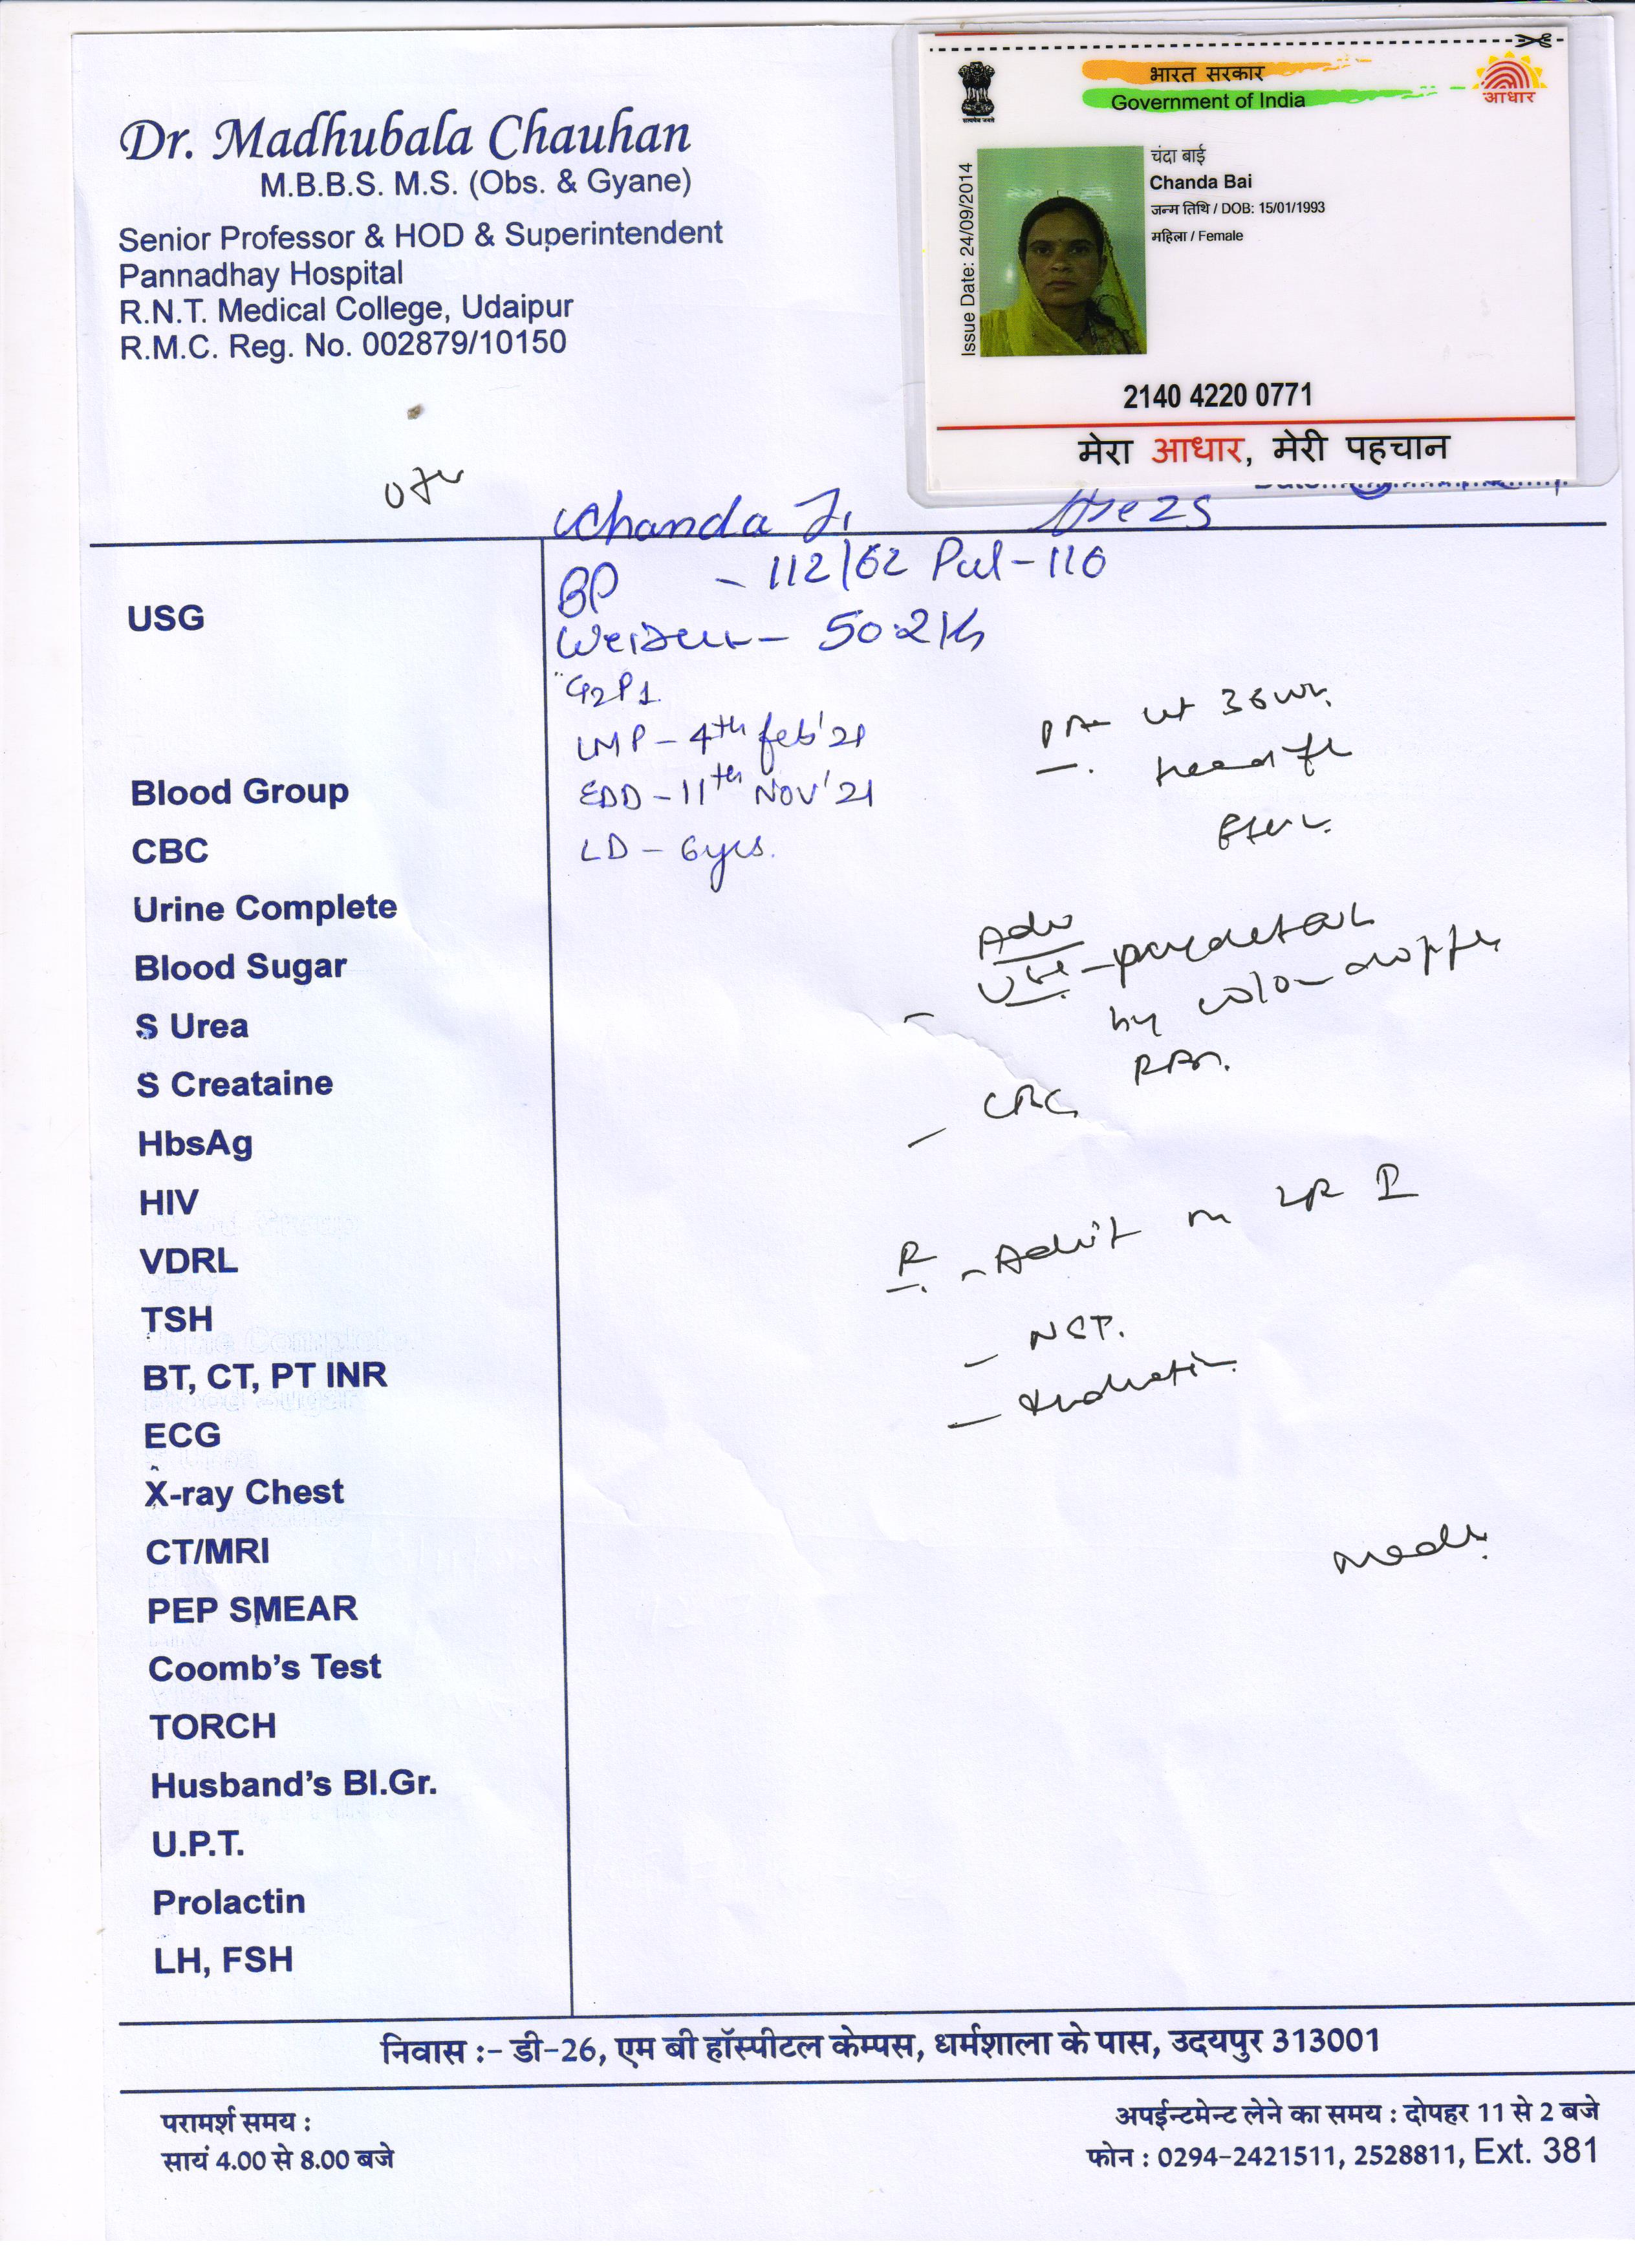 Dr. Madhubala Chauhan
M.B.B.S. M.S. (Obs. & Gyane)
Senior Professor & HOD & Superintendent
Pannadhay Hospital
R.N.T. Medical College, Udaipur
R.M.C. Reg. No. 002879/10150
भारत सरकार
Government of India
आधार
Issue Date: 24/09/2014
चंदा बाई
Chanda Bai
जन्म तिथि / DOB: 15/01/1993
महिला / Female
2140 4220 0771
मेरा आधार, मेरी पहचान
Chanda Ji Age 25
BP - 112/62 Pul-116
- 50.2 Kg
G2P1
LMP - 4th feb'21
EDD - 11th NOV'21
LD - 6yrs.
36 wk
Adv
by
CBC
R - Admit LR I
- NST.
- Induction
USG
Blood Group
CBC
Urine Complete
Blood Sugar
S Urea
S Creataine
HbsAg
HIV
VDRL
TSH
BT, CT, PT INR
ECG
X-ray Chest
CT/MRI
PEP SMEAR
Coomb's Test
TORCH
Husband's Bl.Gr.
U.P.T.
Prolactin
LH, FSH
निवास :- डी-26, एम बी हॉस्पीटल केम्पस, धर्मशाला के पास, उदयपुर 313001
परामर्श समय :
सायं 4.00 से 8.00 बजे
अपईन्टमेन्ट लेने का समय : दोपहर 11 से 2 बजे
फोन : 0294-2421511, 2528811, Ext. 381